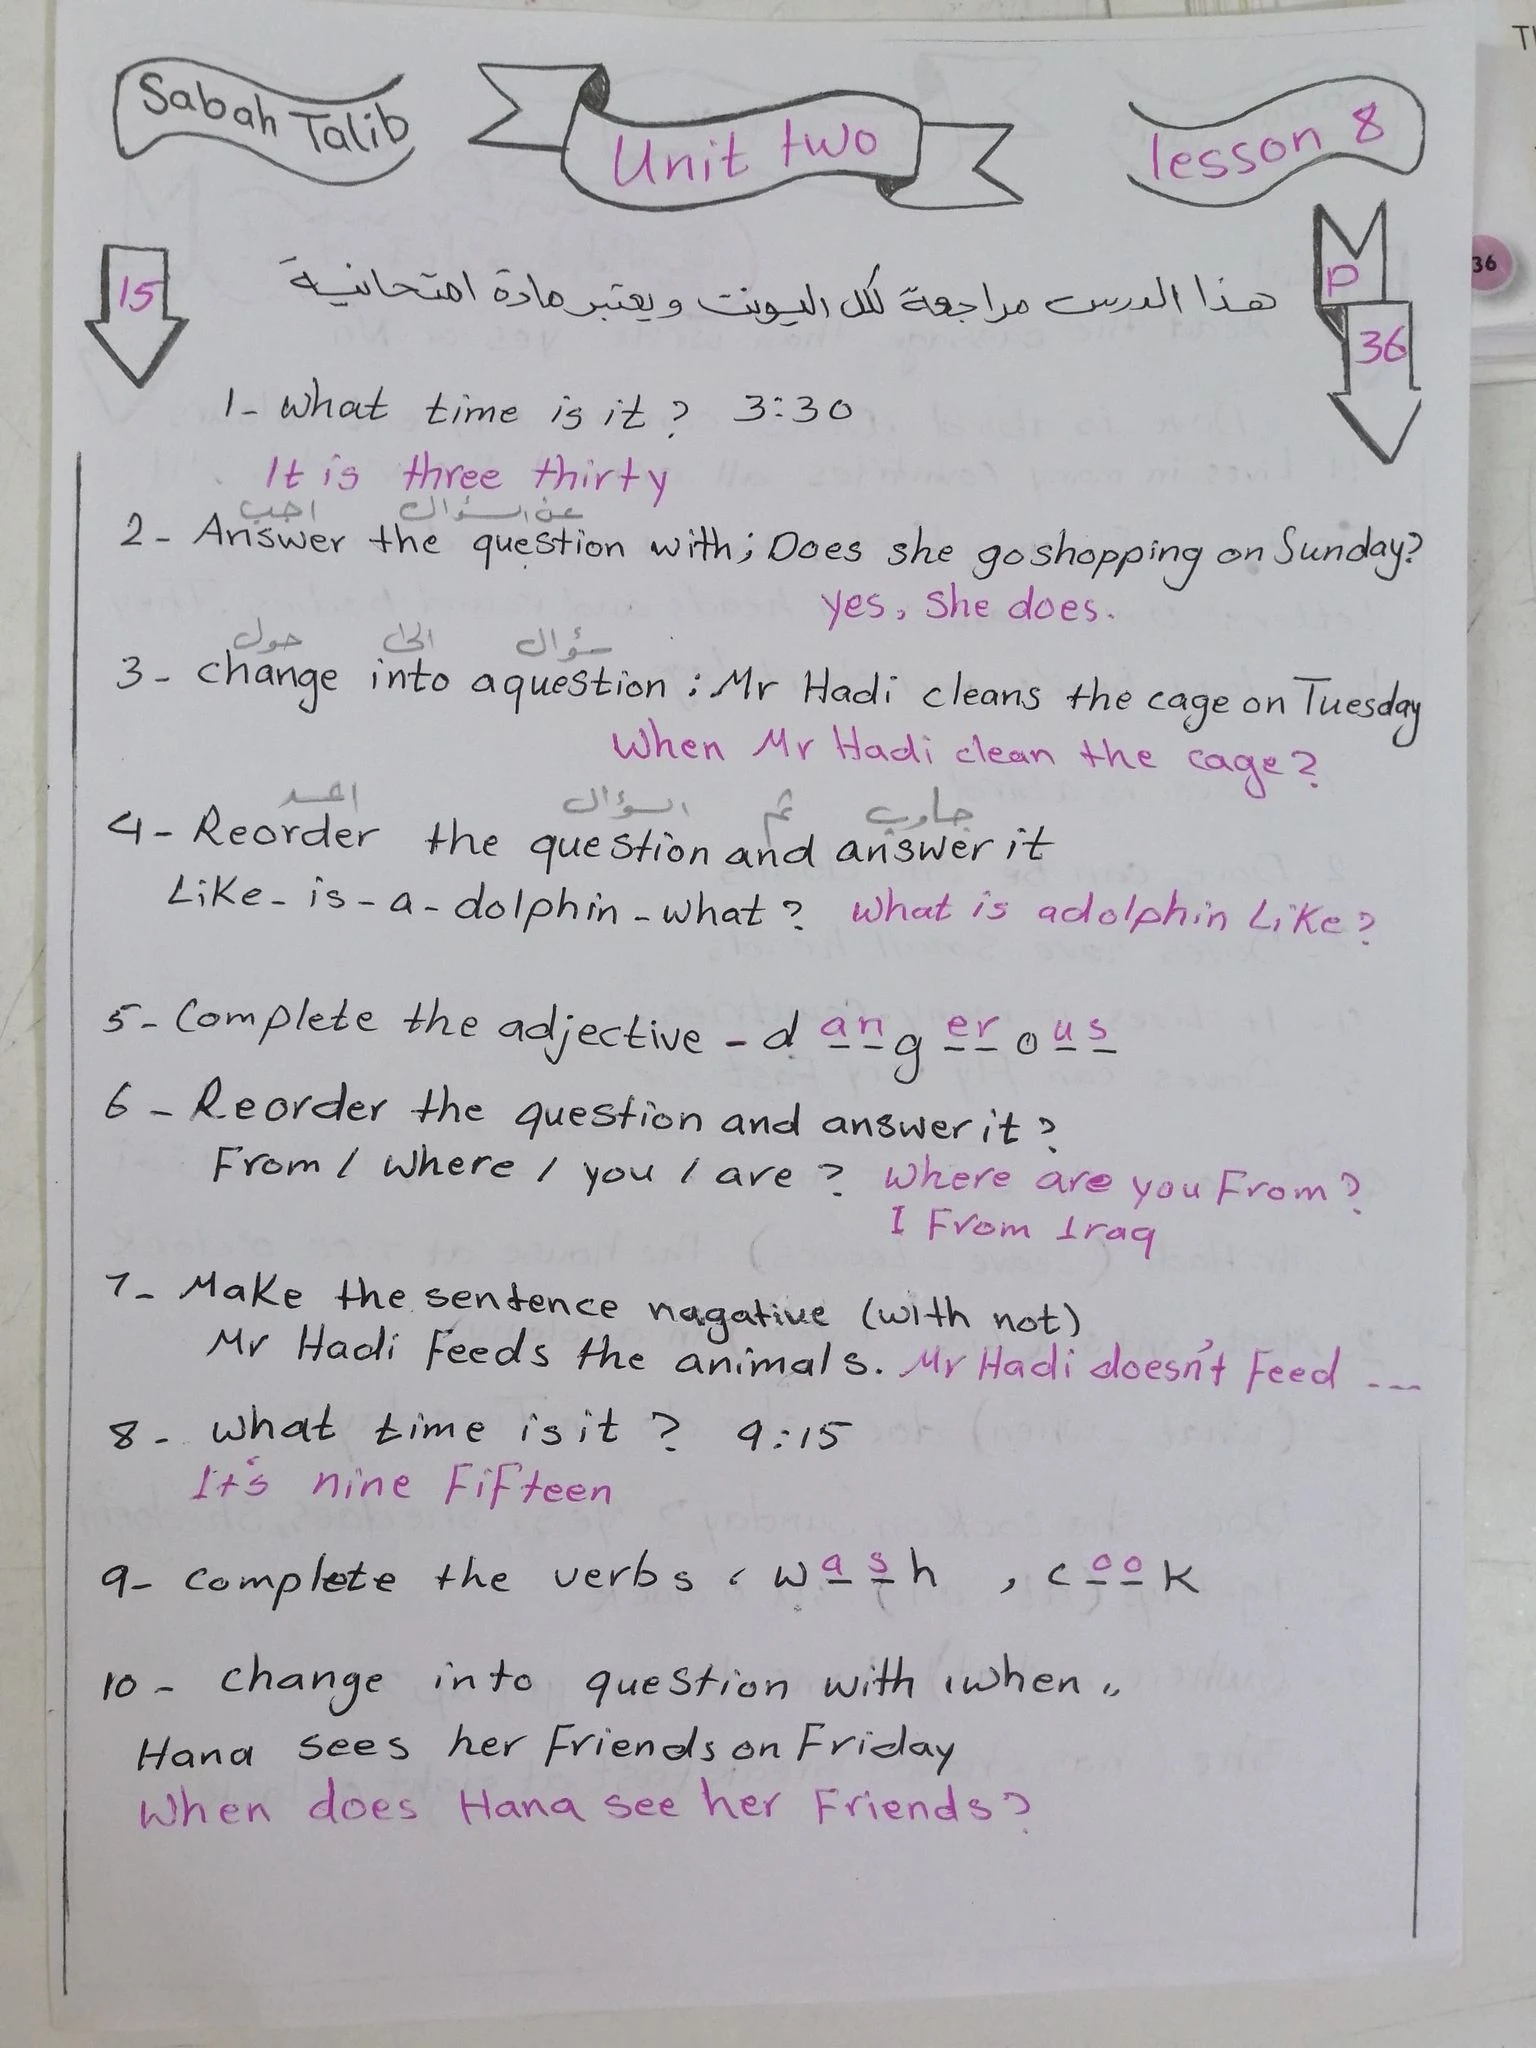 Sabah Talib
Unit two
lesson 8
15
هذا الدرس مراجعة لكل اليونت ويعتبر مادة امتحانية
P
36
36
1- What time is it? 3:30
It is three thirty
اجب عن السؤال
2- Answer the question with; Does she go shopping on Sunday?
yes, She does.
حول الى سؤال
3- change into a question : Mr Hadi cleans the cage on Tuesday
When Mr Hadi clean the cage?
اعد السؤال ثم جاوب
4- Reorder the question and answer it
Like- is - a - dolphin - what? What is a dolphin Like?
5- Complete the adjective - d an g er o us
6- Reorder the question and answer it?
From / Where / you / are ? Where are you From?
I From Iraq
7- Make the sentence nagative (with not)
Mr Hadi Feeds the animals. Mr Hadi doesn't Feed ---
8- What time is it ? 9:15
It's nine Fifteen
9- Complete the verbs , w a s h , c o o k
10- change into question with "when"
Hana sees her Friends on Friday
When does Hana see her Friends?